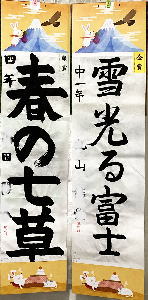 金賞
雪光る富士
中一年
山
銀賞
春の七草
四年